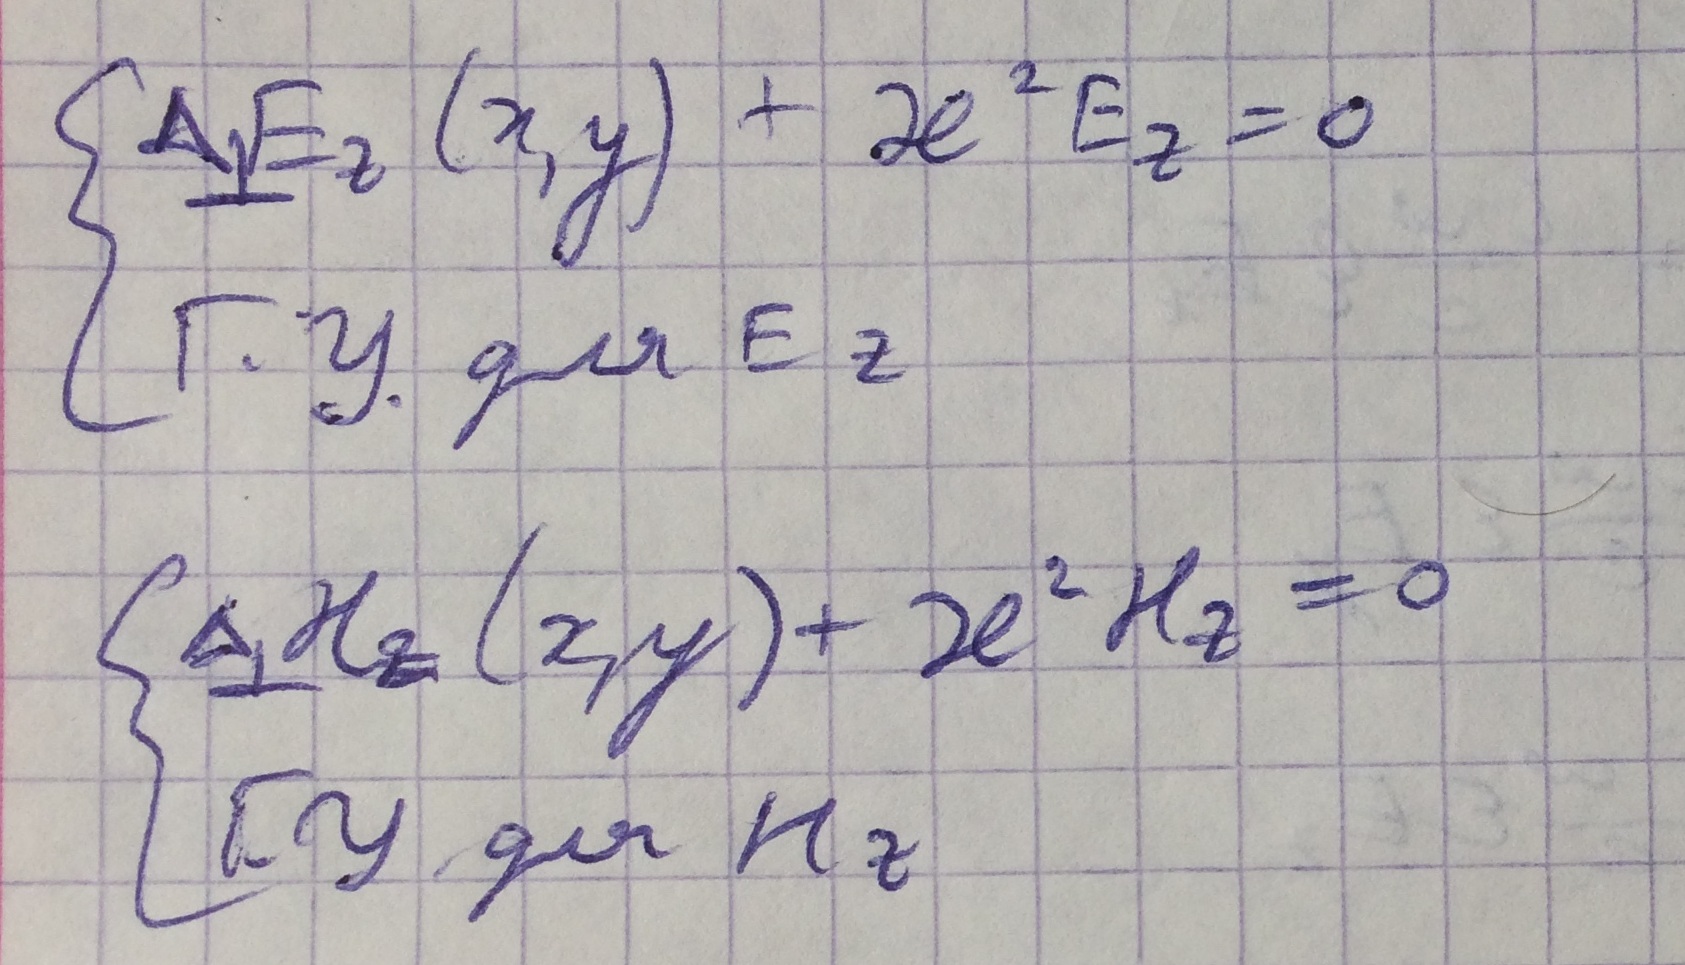 Δ⊥Ez (x,y) + æ²Ez = 0
Г.У. для Ez
Δ⊥Hz (x,y) + æ²Hz = 0
ГУ для Hz